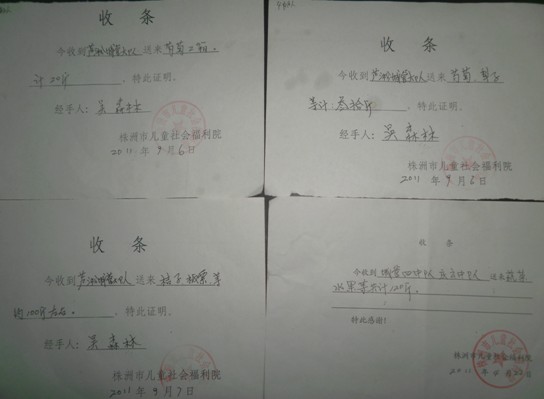 收 条
今收到芦淞城管大队送来葡萄2箱。
计20斤，特此证明。
经手人：吴森林
株洲市儿童社会福利院
2011年9月6日
收 条
今收到芦淞城管大队送来葡萄、
共计叁拾斤，特此证明。
经手人：吴森林
株洲市儿童社会福利院
2011年9月6日
收 条
今收到芦淞城管大队送来桔子 板栗 等
约100斤左右。，特此证明。
经手人：吴森林
株洲市儿童社会福利院
2011年9月7日
收 条
今收到城管四中队 中队送来蔬菜
水果等共计120斤。
特此感谢！
株洲市儿童社会福利院
2011年9月